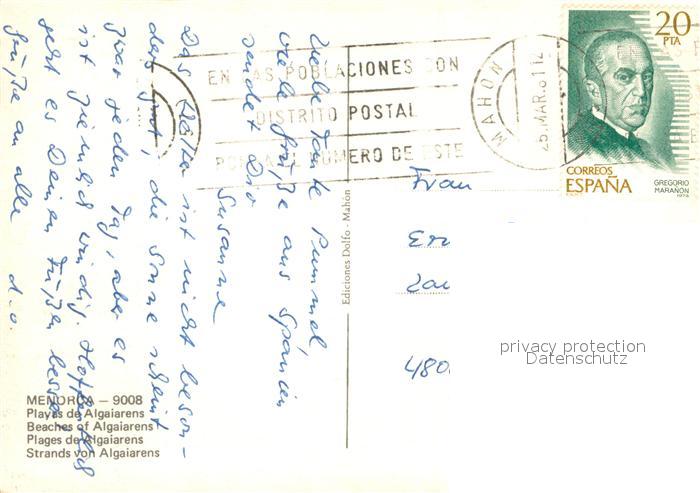 Liebe Tante Pummel
viele Grüße aus Spanien
sendet Dir
Susanne
Das Wetter ist nicht beson-
ders gut, die Sonne scheint
zwar jeden Tag, aber es
ist ziemlich windig. Hoffentlich
geht es Deinen Füßen besser
Grüße an alle d.o.
EN LAS POBLACIONES CON
DISTRITO POSTAL
PONGA EL NUMERO DE ESTE
MAHON
25.MAR.81
20
PTA
CORREOS
ESPAÑA
GREGORIO
MARAÑON
Frau
480
privacy protection
Datenschutz
Ediciones Dolfo - Mahón
MENORCA – 9008
Playas de Algaiarens
Beaches of Algaiarens
Plages de Algaiarens
Strands von Algaiarens